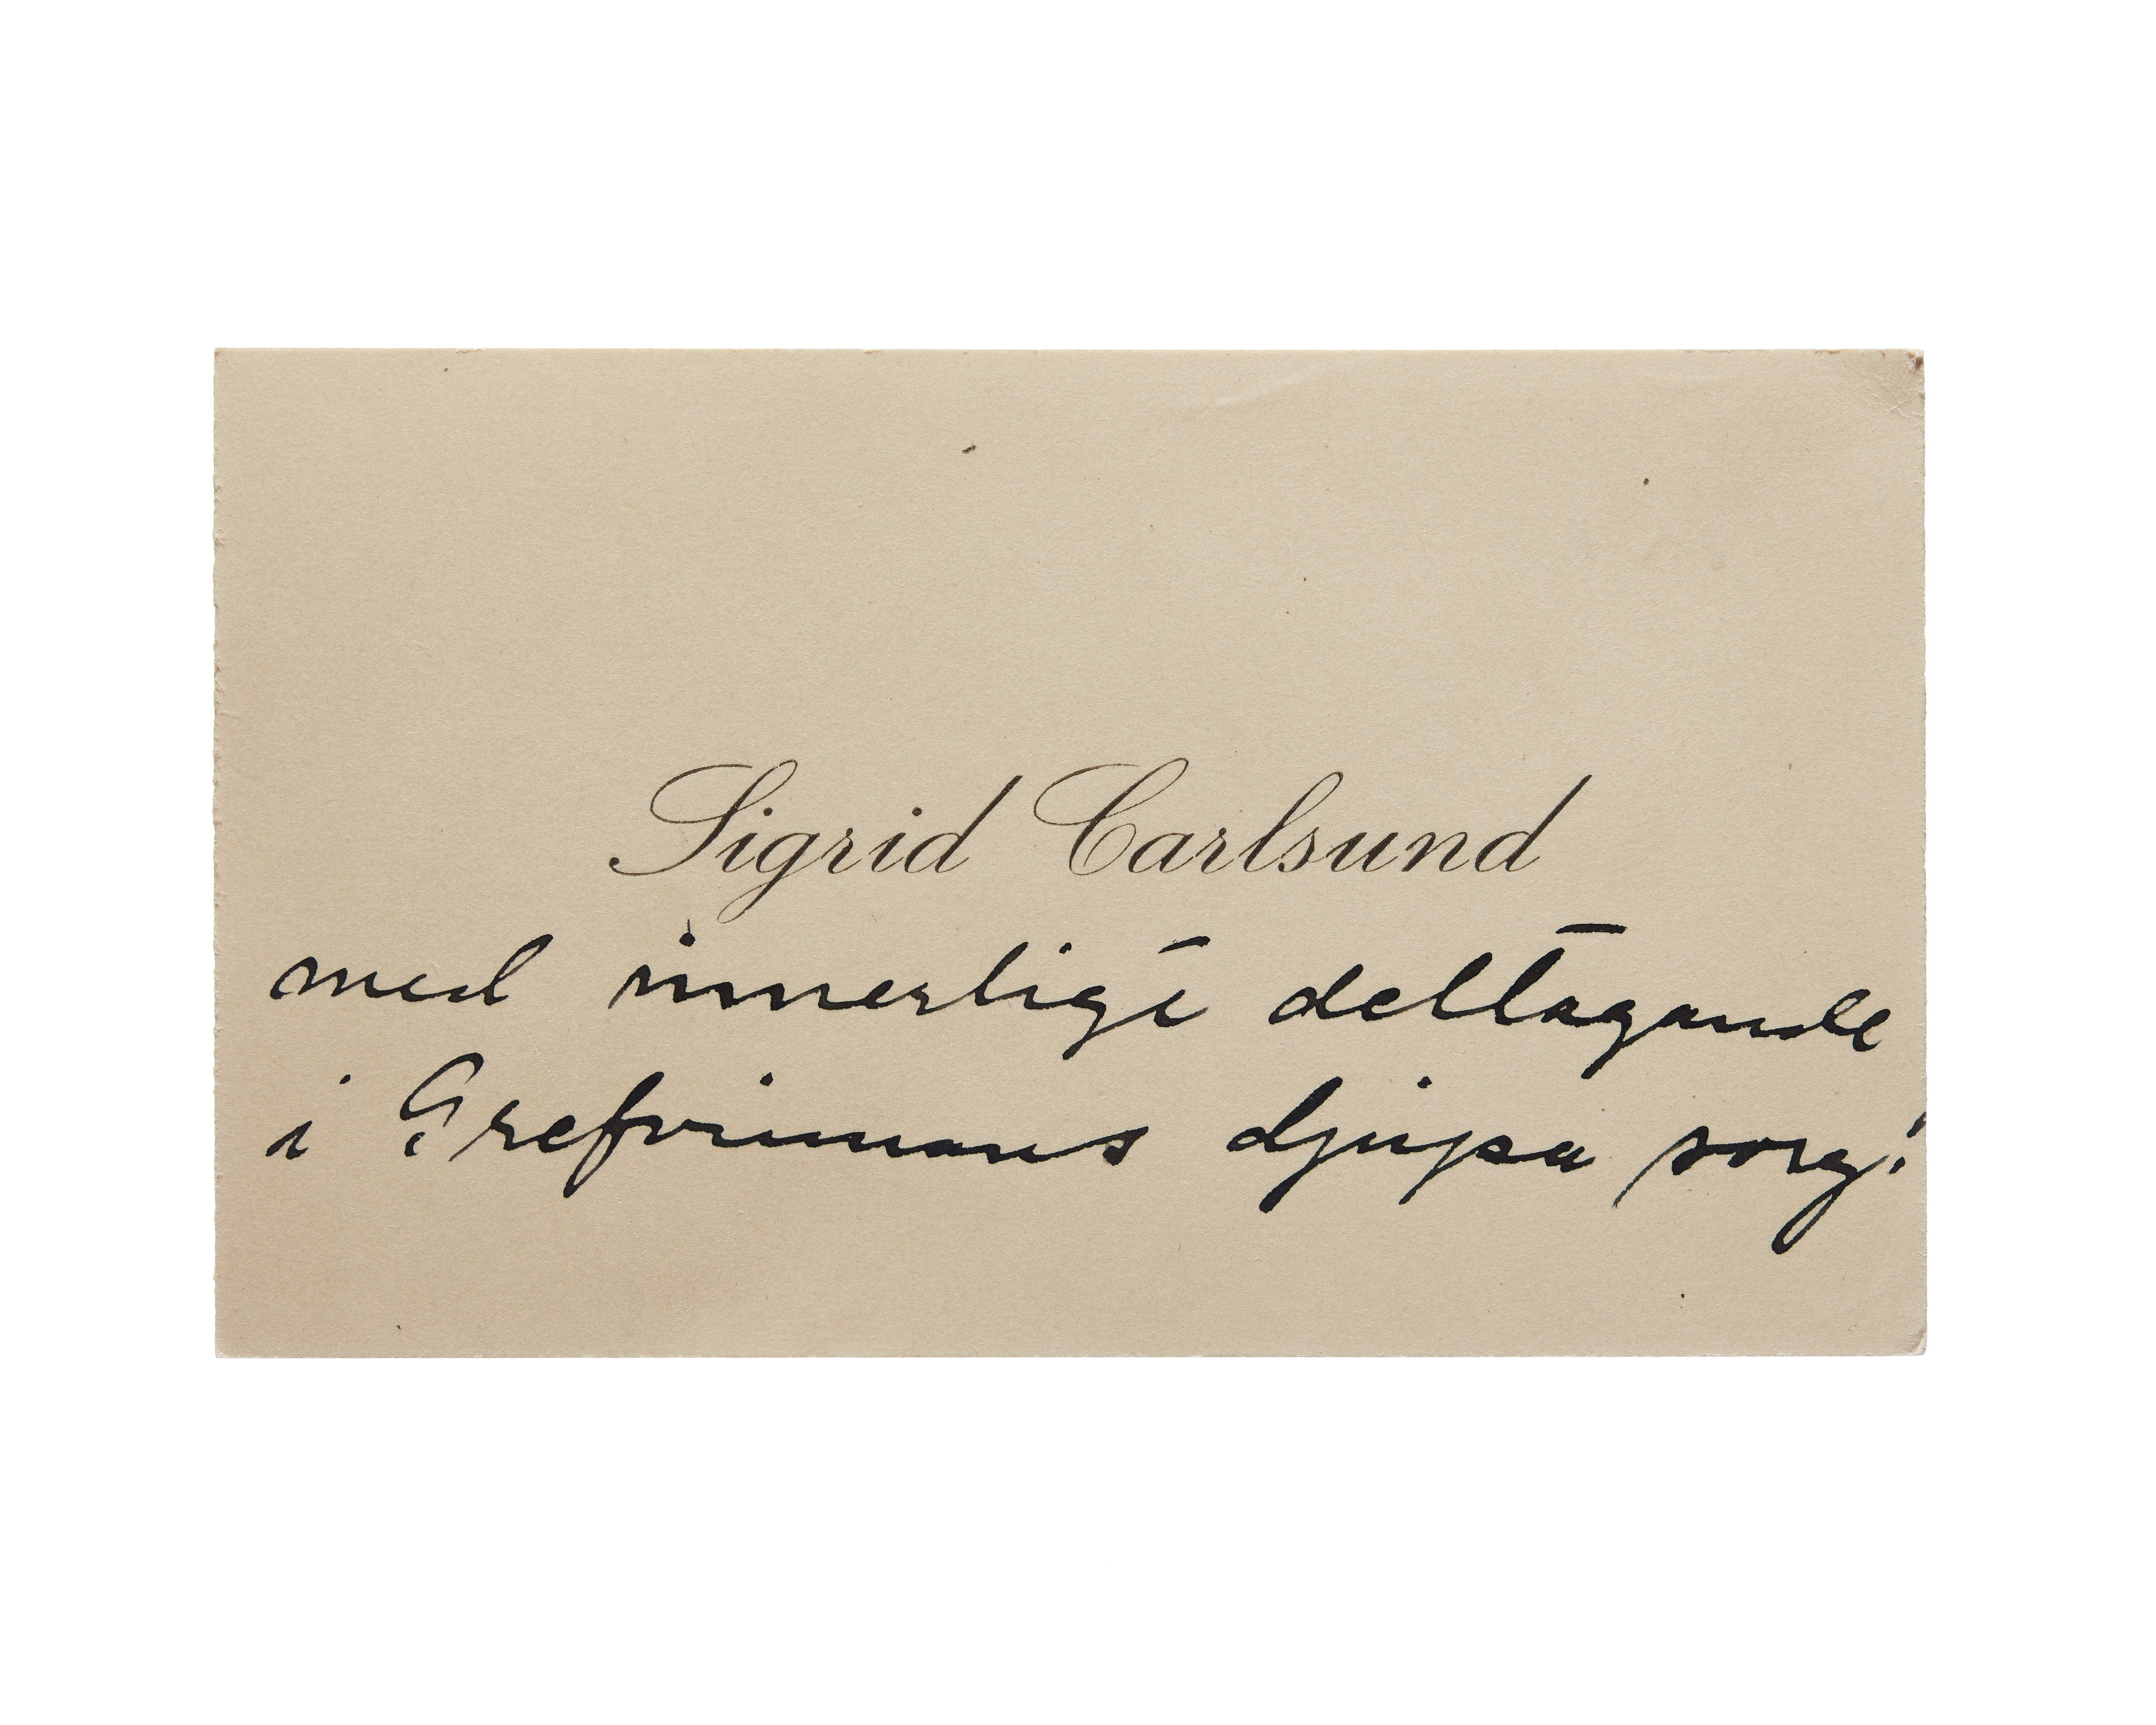 Sigrid Carlsund
med innerligt deltagande
i Grefvinnans djupa sorg!